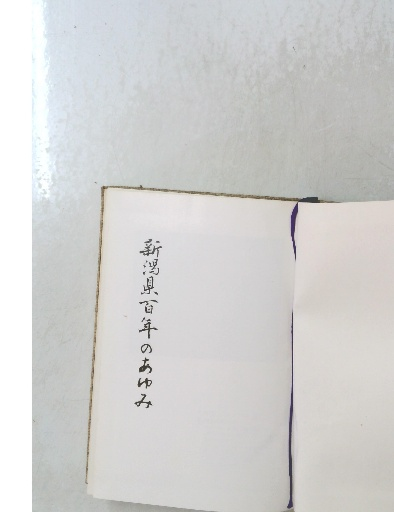 新潟県百年のあゆみ